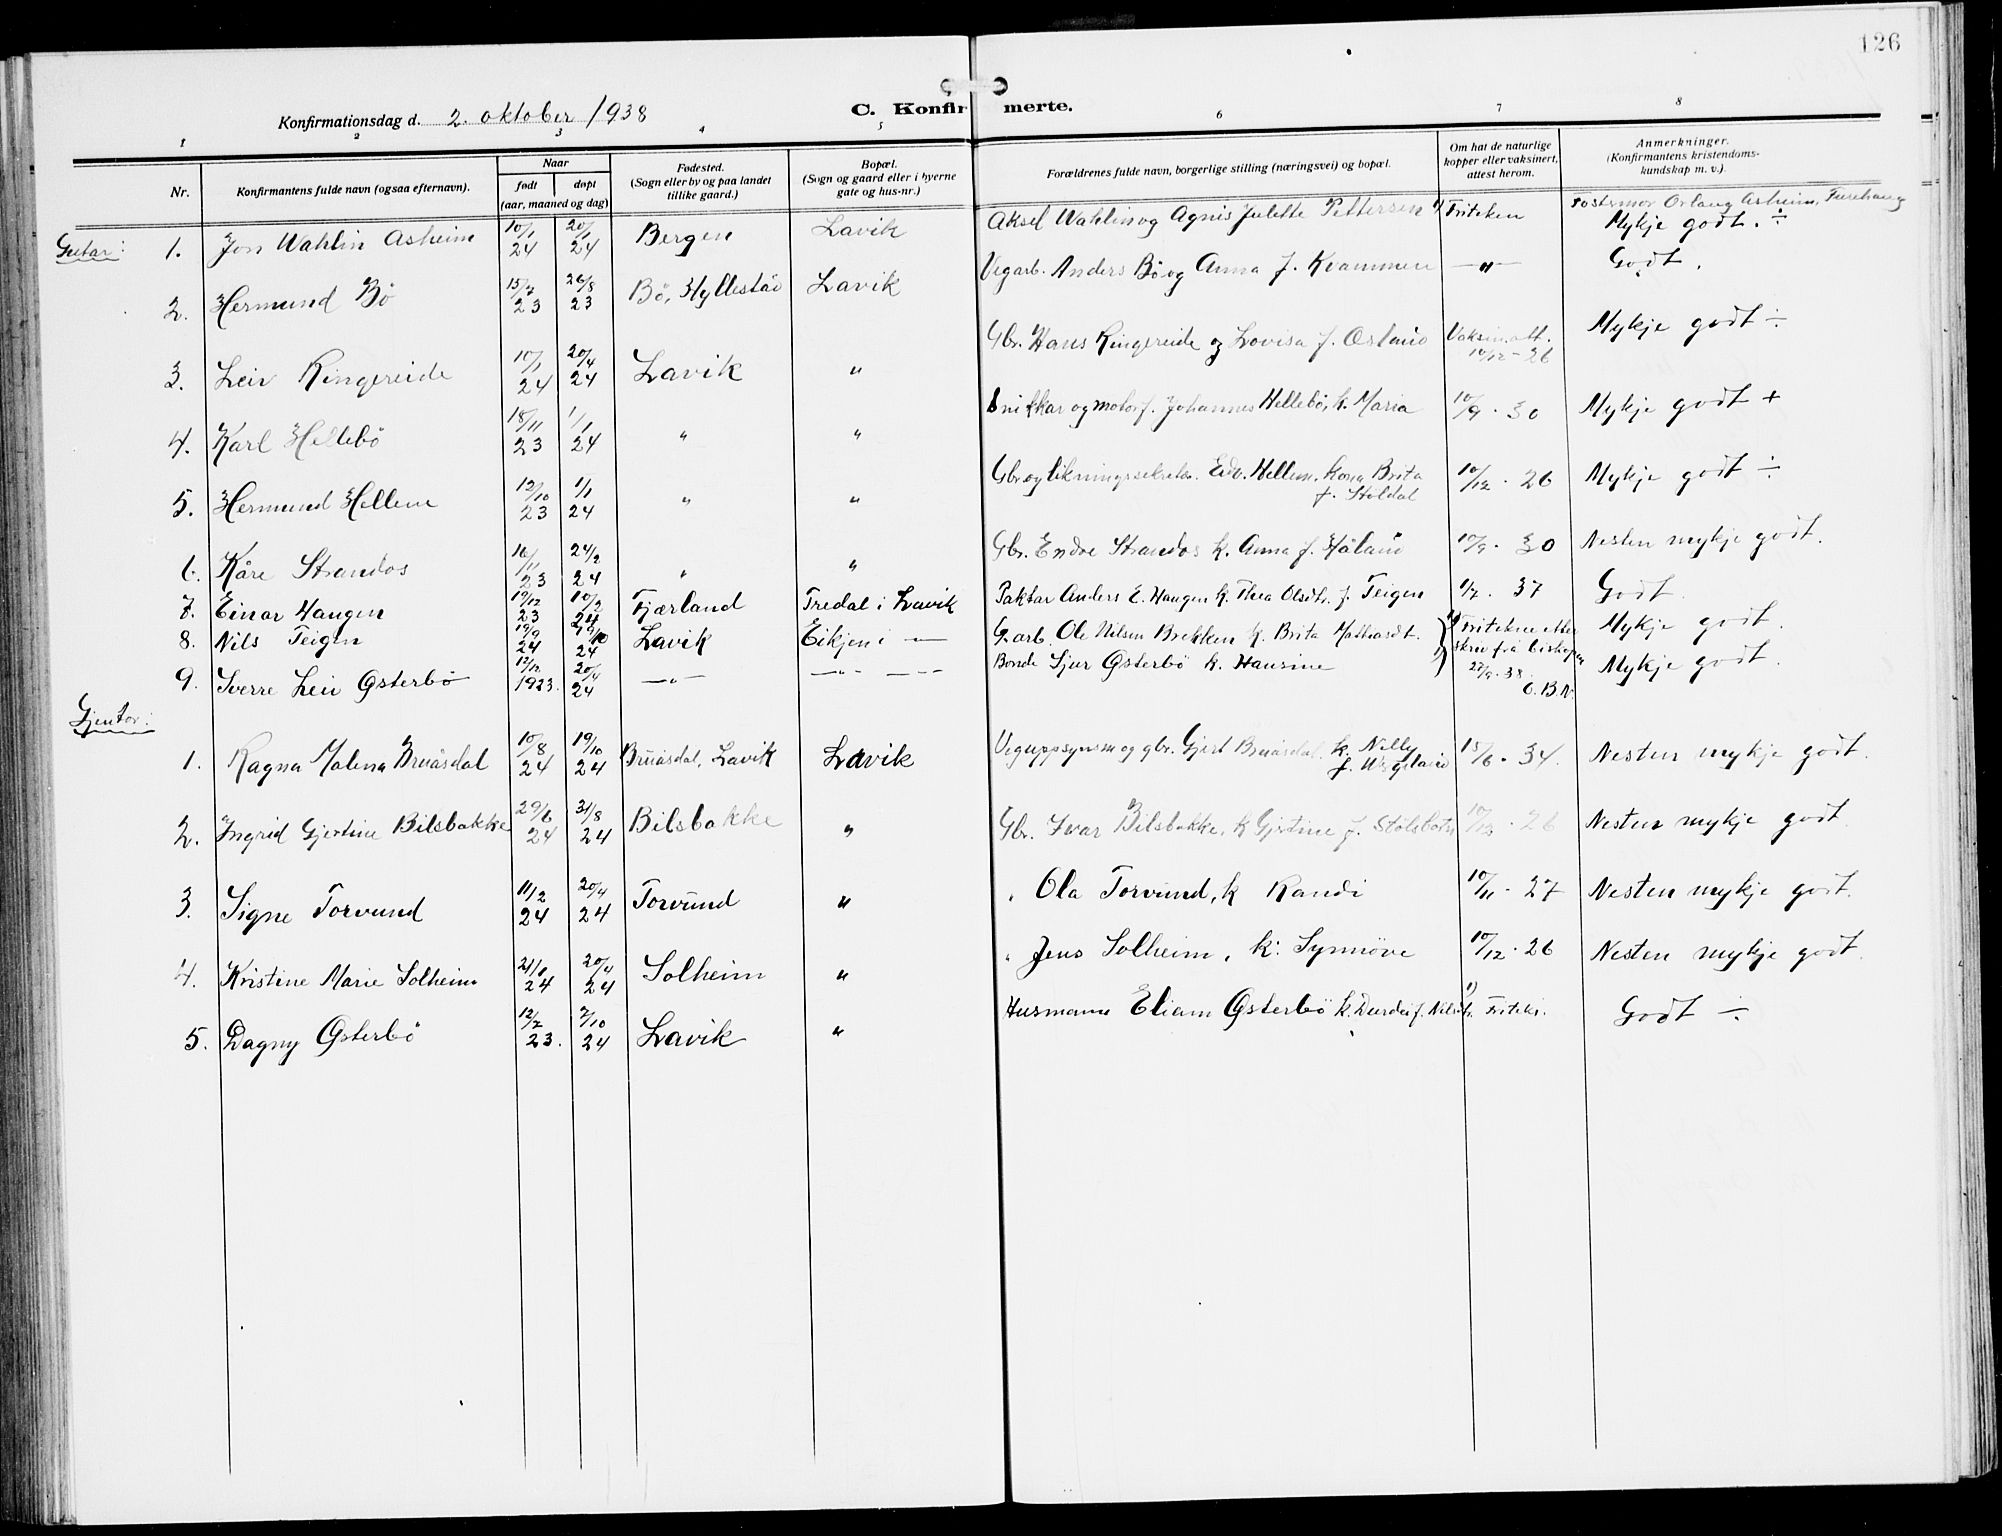 126
Konfirmationsdag d. 2. oktober 1938
C. Konfirmerte.
1 2 3 4 5 6 7 8
Nr.
Konfirmantens fulde navn (ogsaa efternavn).
Naar
født
døpt
(aar, maaned og dag)
Fødested.
(Sogn eller by og paa landet
tillike gaard.)
Bopæl.
(Sogn og gaard eller i byerne
gate og hus-nr.)
Forældrenes fulde navn, borgerlige stilling (næringsvei) og bopæl.
Om hat de naturlige
kopper eller vaksinert,
attest herom.
Anmerkninger.
(Konfirmantens kristendoms-
kundskap m. v.).
Gutar:
Fostermor Orlaug Asheim,
1. Jon Wahlin Asheim 10/1 24 20/1 24 Bergen Lavik Aksel Wahlin og Agnis Julette Pettersen 1) Friteken Mykje godt. ÷
2. Hermund Bö 15/7 23 26/8 23 Bö, Hyllestad Lavik Vegarb. Anders Bö og Anna f. Kvammen —"— Godt.
3. Leiv Ringereide 10/1 24 20/4 24 Lavik " Gbr. Hans Ringereide og Lovisa f. Østland Vaksin.att. 10/12 - 26 Mykje godt ÷
4. Karl Hellebö 18/11 23 1/1 24 " " Snikkar og motorf. Johannes Hellebö, k. Maria 10/9 . 30 Mykje godt +
5. Hermund Hellem 12/10 23 1/1 24 " " Gbr. og likningssekretær. Edv. Hellem, kona Brita f. Stöldal 10/12 . 26 Mykje godt ÷
6. Kåre Strandos 16/11 23 24/2 24 " " Gbr. Endre Strandos k. Anna f. Håland 10/9 . 30 Nesten mykje godt.
7. Einar Haugen 19/12 23 10/2 24 Fjærland Tredal i Lavik Paktar Anders E. Haugen k. Thea Olsdtr. f. Teigen 1/7 . 37 Godt.
8. Nils Teigen 19/9 24 19/10 24 Lavik Eikjen i — G.arb. Ole Nilsen Brekken k. Brita Mathiasdt. 1) Fritekne etter Mykje godt.
9. Sverre Leiv Østerbö 12/12 1923. 20/4 24 —"— —"— —— Bonde Sjur Østerbö k. Hansine skriv frå biskopen 27/9. 38. O.B.N. Mykje godt.
Gjentor:
1. Ragna Malena Bruåsdal 10/8 24 19/10 24 Bruåsdal, Lavik Lavik Veguppsynsm og gbr. Gjert Bruåsdal. k. Nelly 15/6 . 34. Nesten mykje godt.
2. Ingrid Gjertine Bilsbakke 29/6 24 31/8 24 Bilsbakke " Gbr. Ivar Bilsbakke, k Gjertine f. Stölsbotn 10/12 . 26 Nesten mykje godt
3. Signe Torvund 11/2 24 20/4 24 Torvund " " Ola Torvund, k Randi 10/11 . 27 Nesten mykje godt.
4. Kristine Marie Solheim 21/1 24 20/4 24 Solheim " " Jens Solheim, k: Synnöve 10/12 . 26 Nesten mykje godt.
5. Dagny Østerbö 12/7 23. 7/10 24 Lavik " Husmann Eliam Østerbö k. 1) Fritekr. Godt ÷